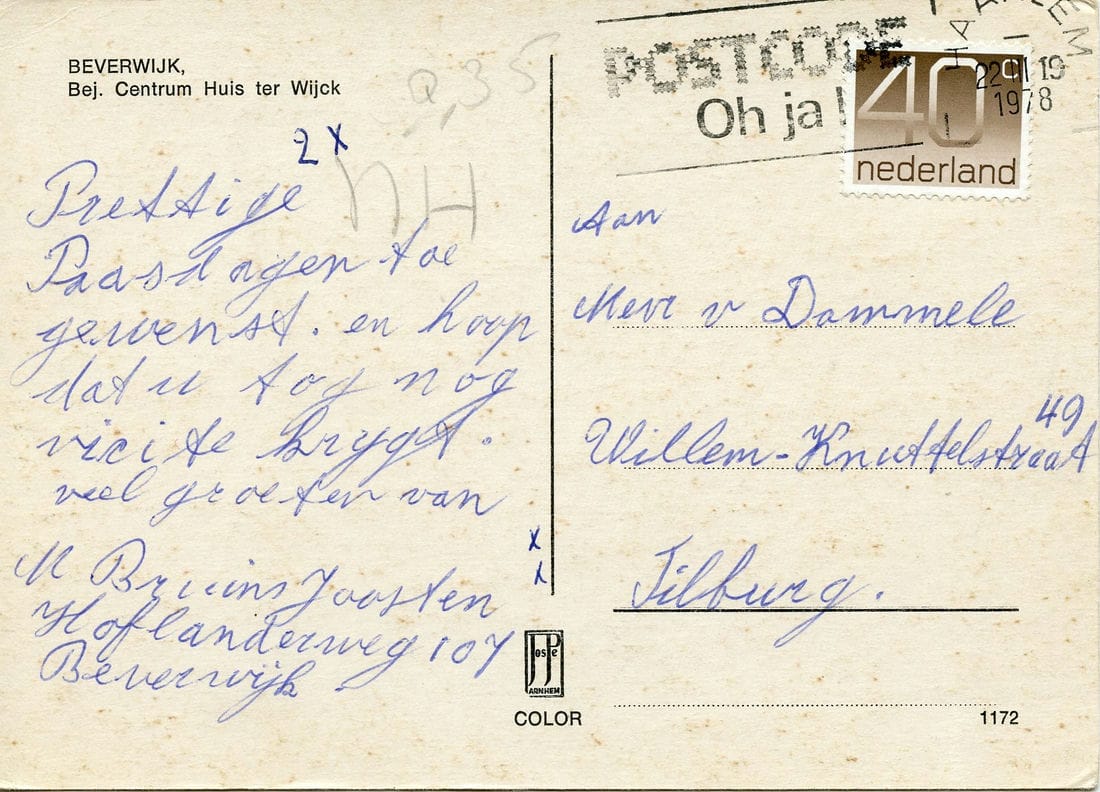 BEVERWIJK,
Bej. Centrum Huis ter Wijck
2 x
NH
Prettige
Paasdagen toe
gewenst. en hoop
dat u tog nog
vicite krygt.
veel groeten van
M Bruins Joosten
Hoflanderweg 107
Beverwijk.
x
x
POSTCODE
Oh ja!
HAARLEM
1978
40c
nederland
Aan
Mevr v Dammele
49
Willem-Knuttelstraat
Tilburg.
JosPe
ARNHEM
COLOR
1172